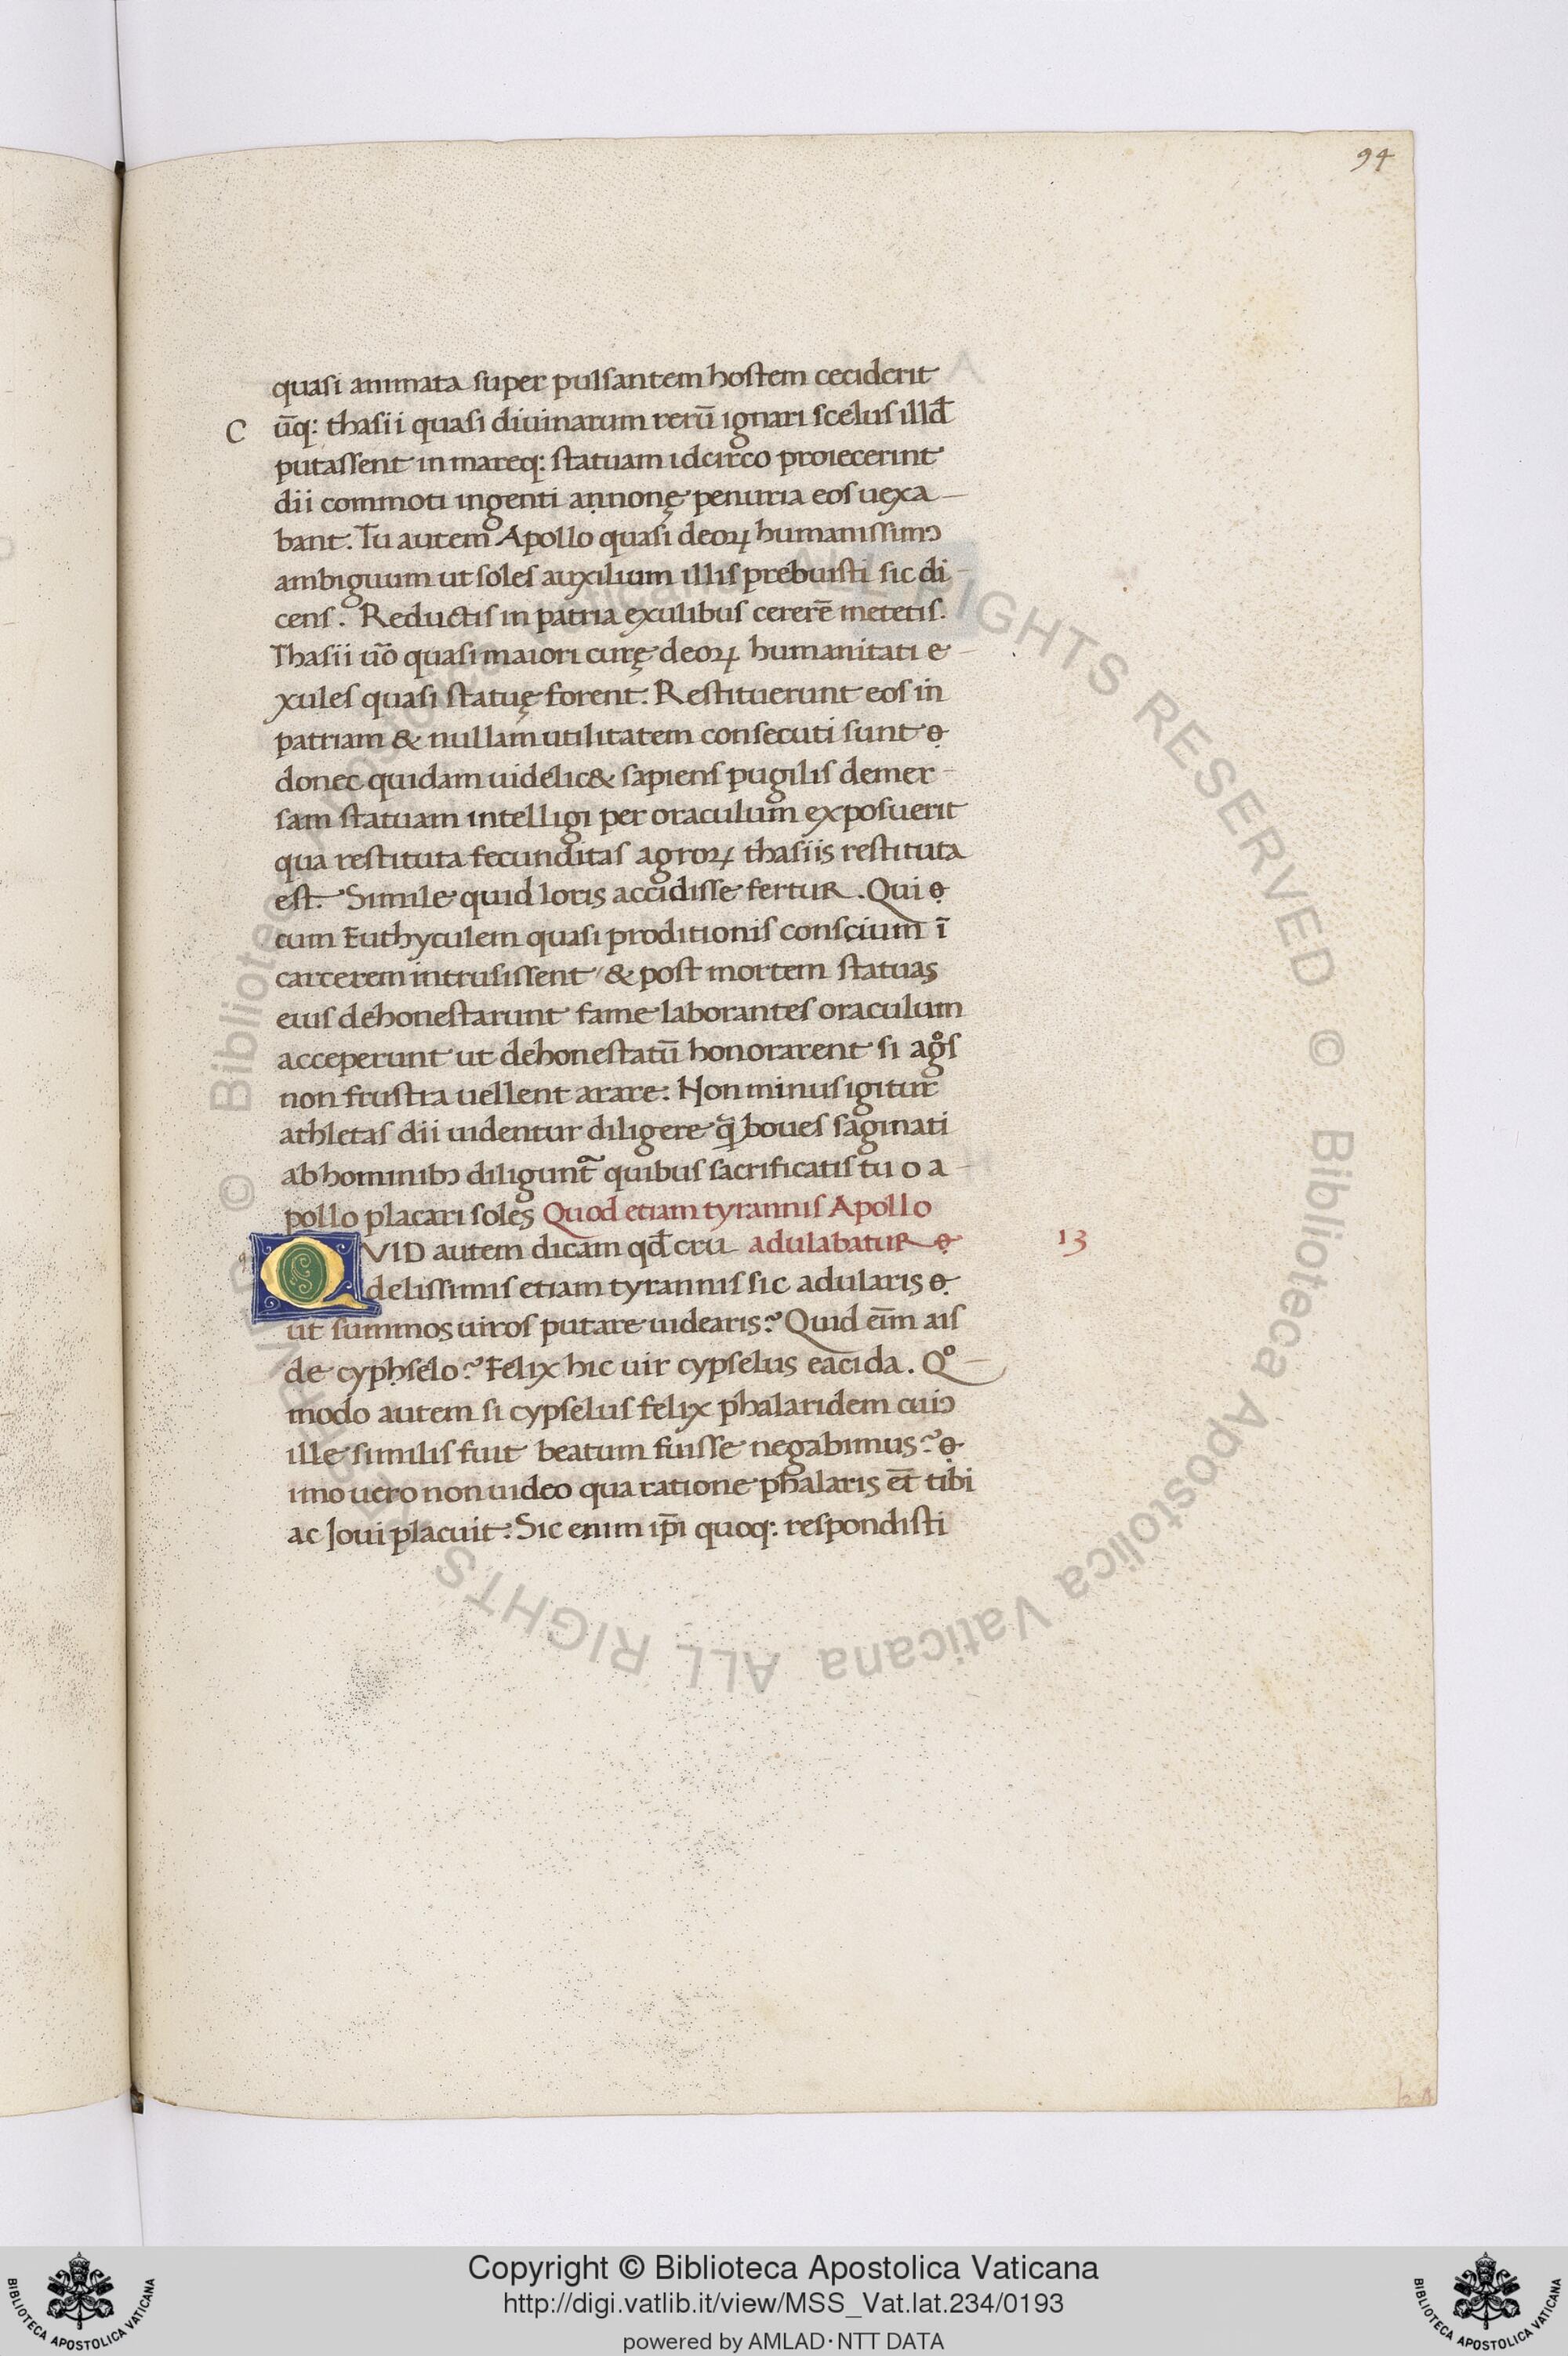 94
quasi animata super pulsantem hostem ceciderit
C ūq: thasii quasi diuinarum rerū ignari scelus illđ
putassent in mareq: statuam idcirco proiecerint
dii commoti ingenti annonę penuria eos uexa
bant. Tu autem Apollo quasi deoꝝ humanissimꝰ
ambiguum ut soles auxilium illis prębuisti sic di
cens. Reductis in patria exulibus cererē metetis.
Thasii uō quasi maiori curę deoꝝ humanitati e
xules quasi statuę forent. Restituerunt eos in
patriam & nullam utilitatem consecuti sunt
donec quidam uidelic& sapiens pugilis demer
sam statuam intelligi per oraculum exposuerit
qua restituta fecunditas agroꝝ thasiis restituta
est. Simile quid locris accidisse fertur. Qui
cum Euthyculem quasi proditionis conscium ī
carcerem intrusissent & post mortem statuas
eius dehonestarunt fame laborantes oraculum
acceperunt ut dehonestatū honorarent si agͦs
non frustra uellent arare. Non minus igitur
athletas dii uidentur diligere ꝗ̃ boues saginati
ab hominibꝰ diligunt᷑ quibus sacrificatis tu o a
pollo placari soles Quod etiam tyrannis Apollo
QVID autem dicam qđ cru adulabatur 13
delissimis etiam tyrannis sic adularis
ut summos uiros putare uidearis? Quid eīm ais
de cyphselo? Felix hic uir cypselus eacida. Qͦ
modo autem si cypselus felix phalaridem cuiꝰ
ille similis fuit beatum fuisse negabimus?
imo uero non uideo qua ratione phalaris et̄ tibi
ac Ioui placuit. Sic enim ip̄i quoq: respondisti
© Biblioteca Apostolica Vaticana ALL RIGHTS RESERVED
© Biblioteca Apostolica Vaticana ALL RIGHTS RESERVED
Copyright © Biblioteca Apostolica Vaticana
http://digi.vatlib.it/view/MSS_Vat.lat.234/0193
powered by AMLAD·NTT DATA
BIBLIOTECA APOSTOLICA VATICANA
BIBLIOTECA APOSTOLICA VATICANA